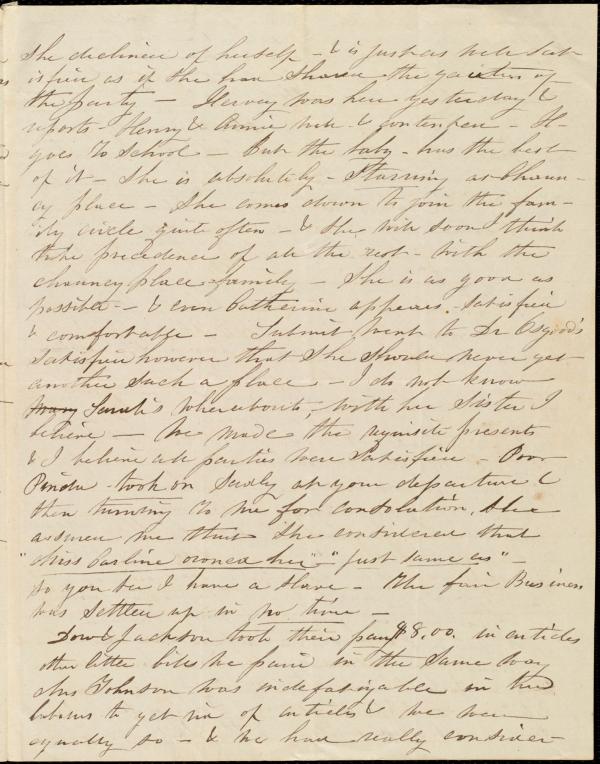 She declined of herself - & is just as well sat-
isfied as if she had shared the gaieties of
the party - Hervey was here yesterday &
reports - Henry & Annie well - & contented - H-
goes to School - But the baby - has the best
of it - She is absolutely - Starring at Chaun-
cy place - She comes down to join the fam-
ily circle quite often - & she will soon I think
take precedence of all the rest - with the
chauncy place family - She is as good as
possible - & even Catherine appears satisfied
& comfortable - Submit went to Dr Osgood's
satisfied however that she should never get
another such a place - I do not know
Mary Sarah's whereabouts, with her sister I
believe - We made the requisite presents
& I believe all parties were satisfied - Poor
Pindu took on sadly at your departure &
then turning to me for consolation, she
assured me that she considered that
"Miss Carline owned her" "just same as" -
so you see I have a slave - The fair Business
was settled up in no time -
Dow & Jackson took their pay $8.00. in articles
other little bills we paid in the same way
Mrs Johnson was indefatigable in her
labours to get rid of articles & we were
equally so - & we had really consider-